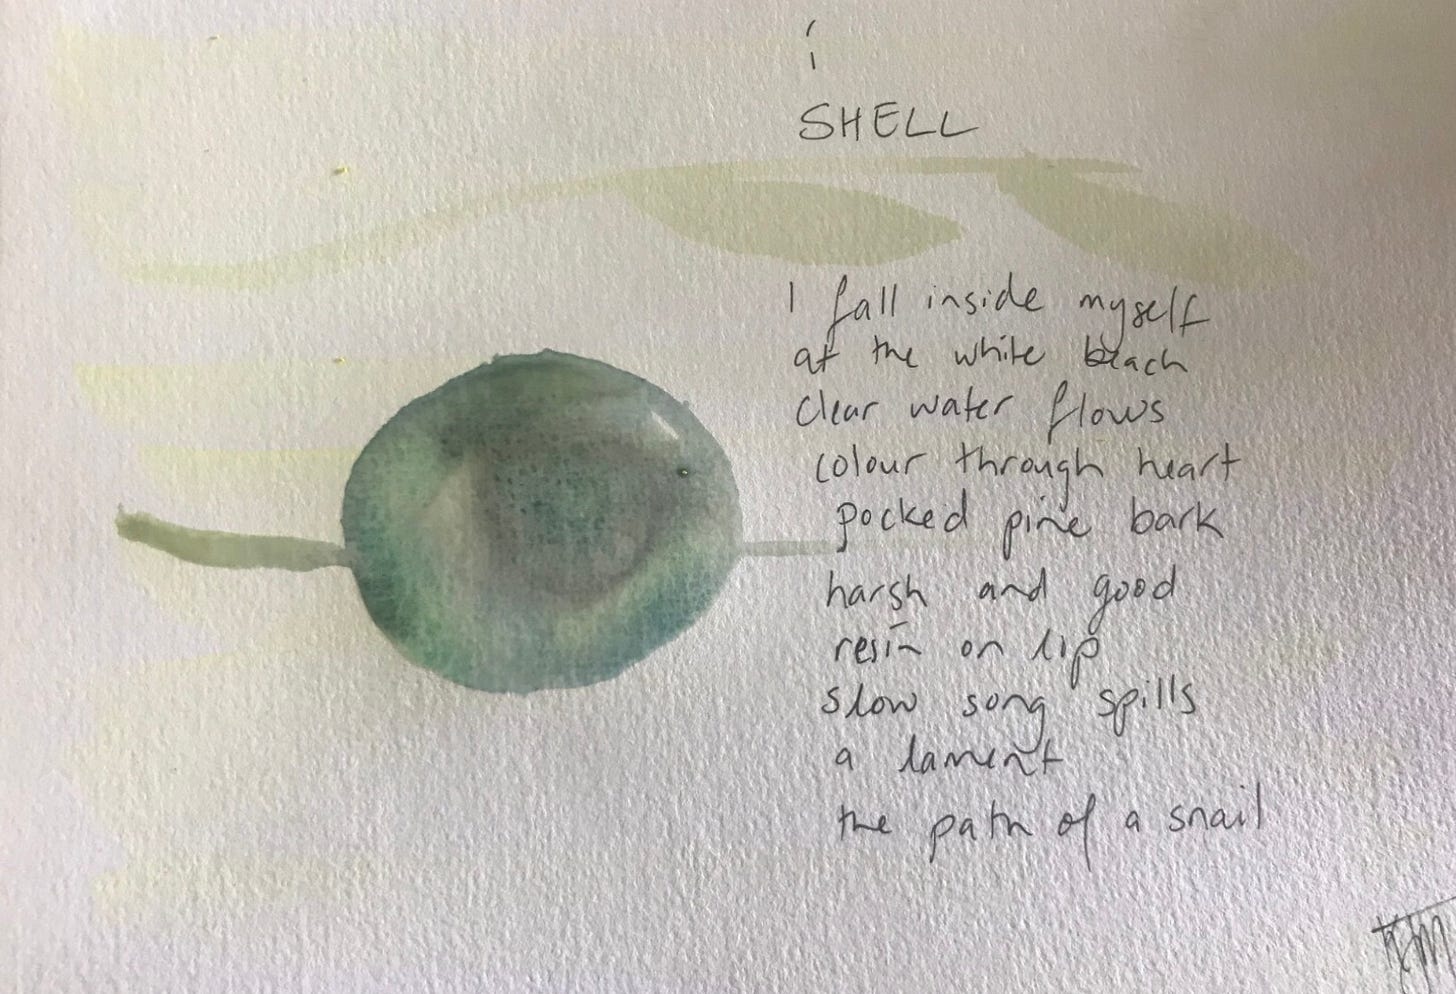 i
SHELL
I fall inside myself
at the white beach
clear water flows
colour through heart
pocked pine bark
harsh and good
resin on lip
slow song spills
a lament
the path of a snail